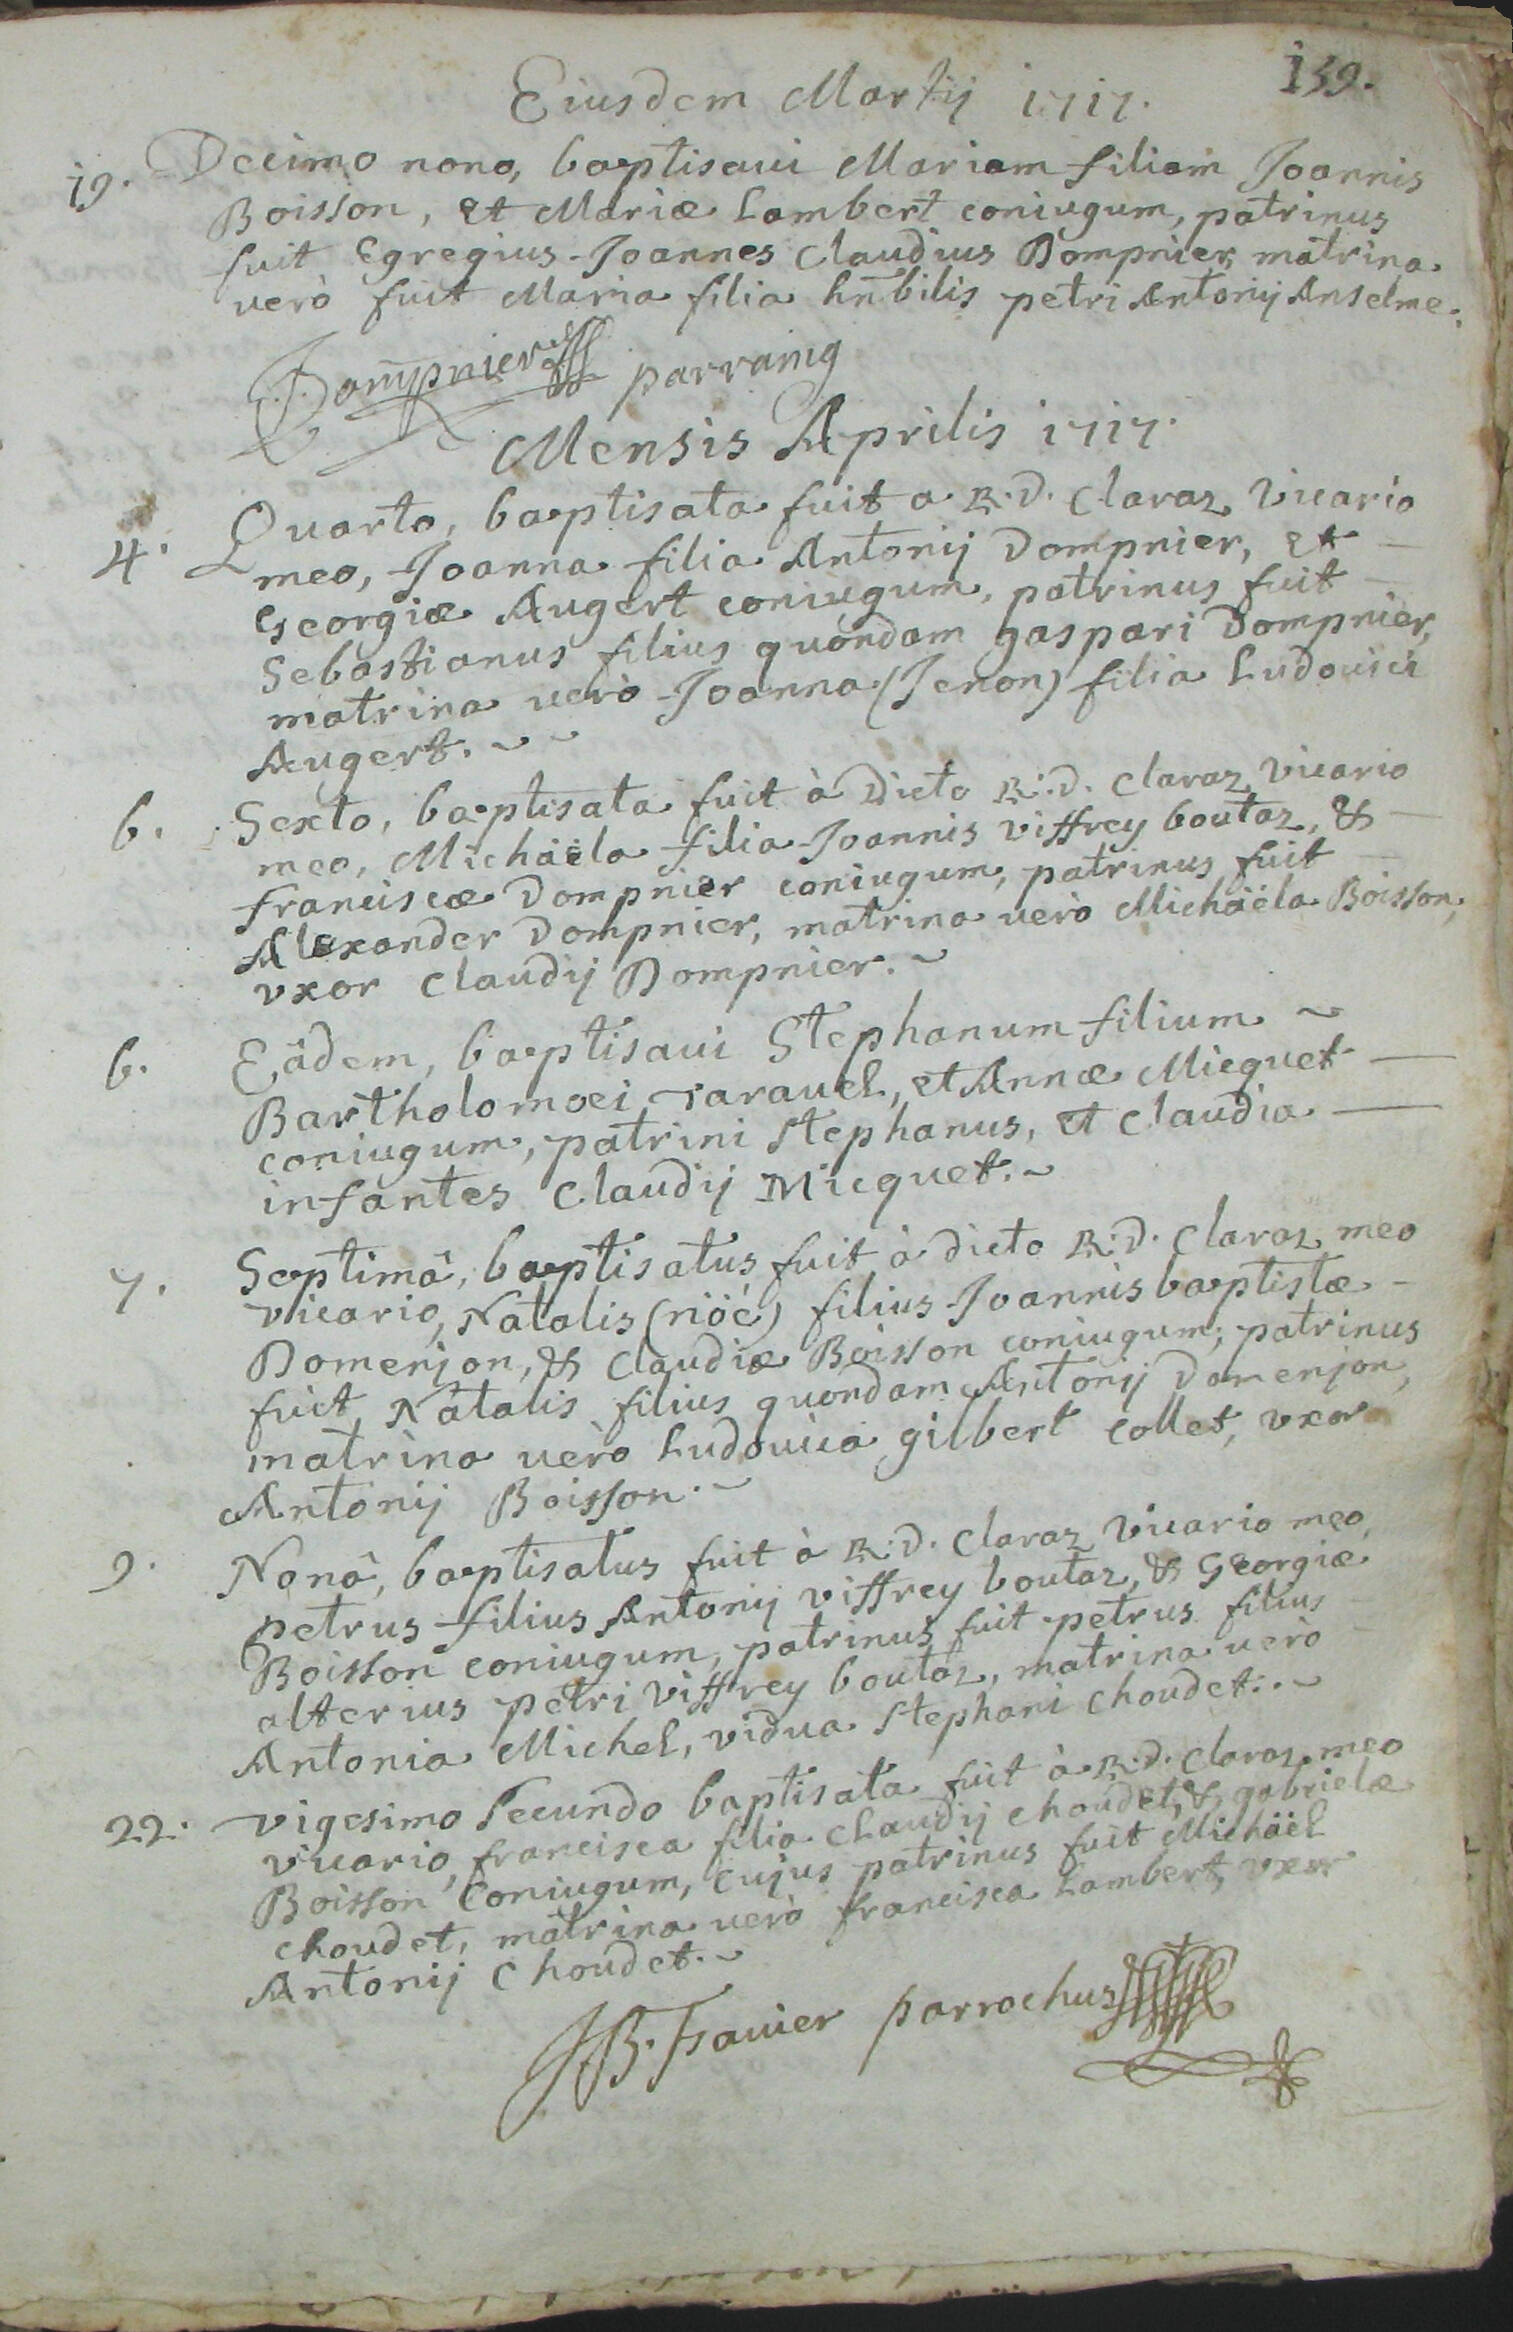 159.
Eiusdem Martij 1717.
19. Decimo nono, baptisaui Mariam filiam Joannis
Boisson, et Mariæ Lambert coniugum, patrinus
fuit Egregius Joannes Claudius Dompnier, matrina
verò fuit Maria filia hn̄bilis petri Antonij Anselme.
Dompnier parraing
Mensis Aprilis 1717.
4. Quarto, baptisata fuit a R.D. Claraz Vicario
meo, Joanna filia Antonij Dompnier, et
Georgiæ Augert coniugum, patrinus fuit
Sebastianus filius quondam gaspari Dompnier,
matrina verò Joanna (Jenon) filia Ludouici
Augert.
6. Sexto, baptisata fuit à Dicto R.D. Claraz Vicario
meo, Michäela filia Joannis viffrey boutaz, &
franciscæ Dompnier coniugum, patrinus fuit
Alexander Dompnier, matrina verò Michäela Boisson,
vxor Claudij Dompnier.
6. Eâdem, baptisaui Stephanum filium
Bartholomoei Taravel, et Annæ Micquet
coniugum, patrini Stephanus, et Claudia
infantes Claudij Micquet.
7. Septimâ, baptisatus fuit à dicto R.D. Claraz meo
vicario, Natalis (nöé) filius Joannis baptistæ
Domenjon, & Claudiæ Boisson coniugum; patrinus
fuit, Natalis filius quondam Antonij Domenjon,
matrina verò Ludouica gilbert collet, vxor
Antonij Boisson.
9. Nonâ, baptisatus fuit à R.D. Claraz Vicario meo,
petrus filius Antonij viffrey boutaz, & Georgiæ
Boisson coniugum, patrinus fuit petrus filius
alterius petri viffrey boutaz, matrina verò
Antonia Michel, vidua Stephani Choudet.
22. Vigesimo Secundo baptisata fuit à R.D. Claraz meo
vicario, francisca filia Claudij Choudet, & gabrielæ
Boisson Coniugum, Cujus patrinus fuit Michäel
Choudet, matrina verò francisca Lambert, vxor
Antonij Choudet.
JB. Favier parrochus